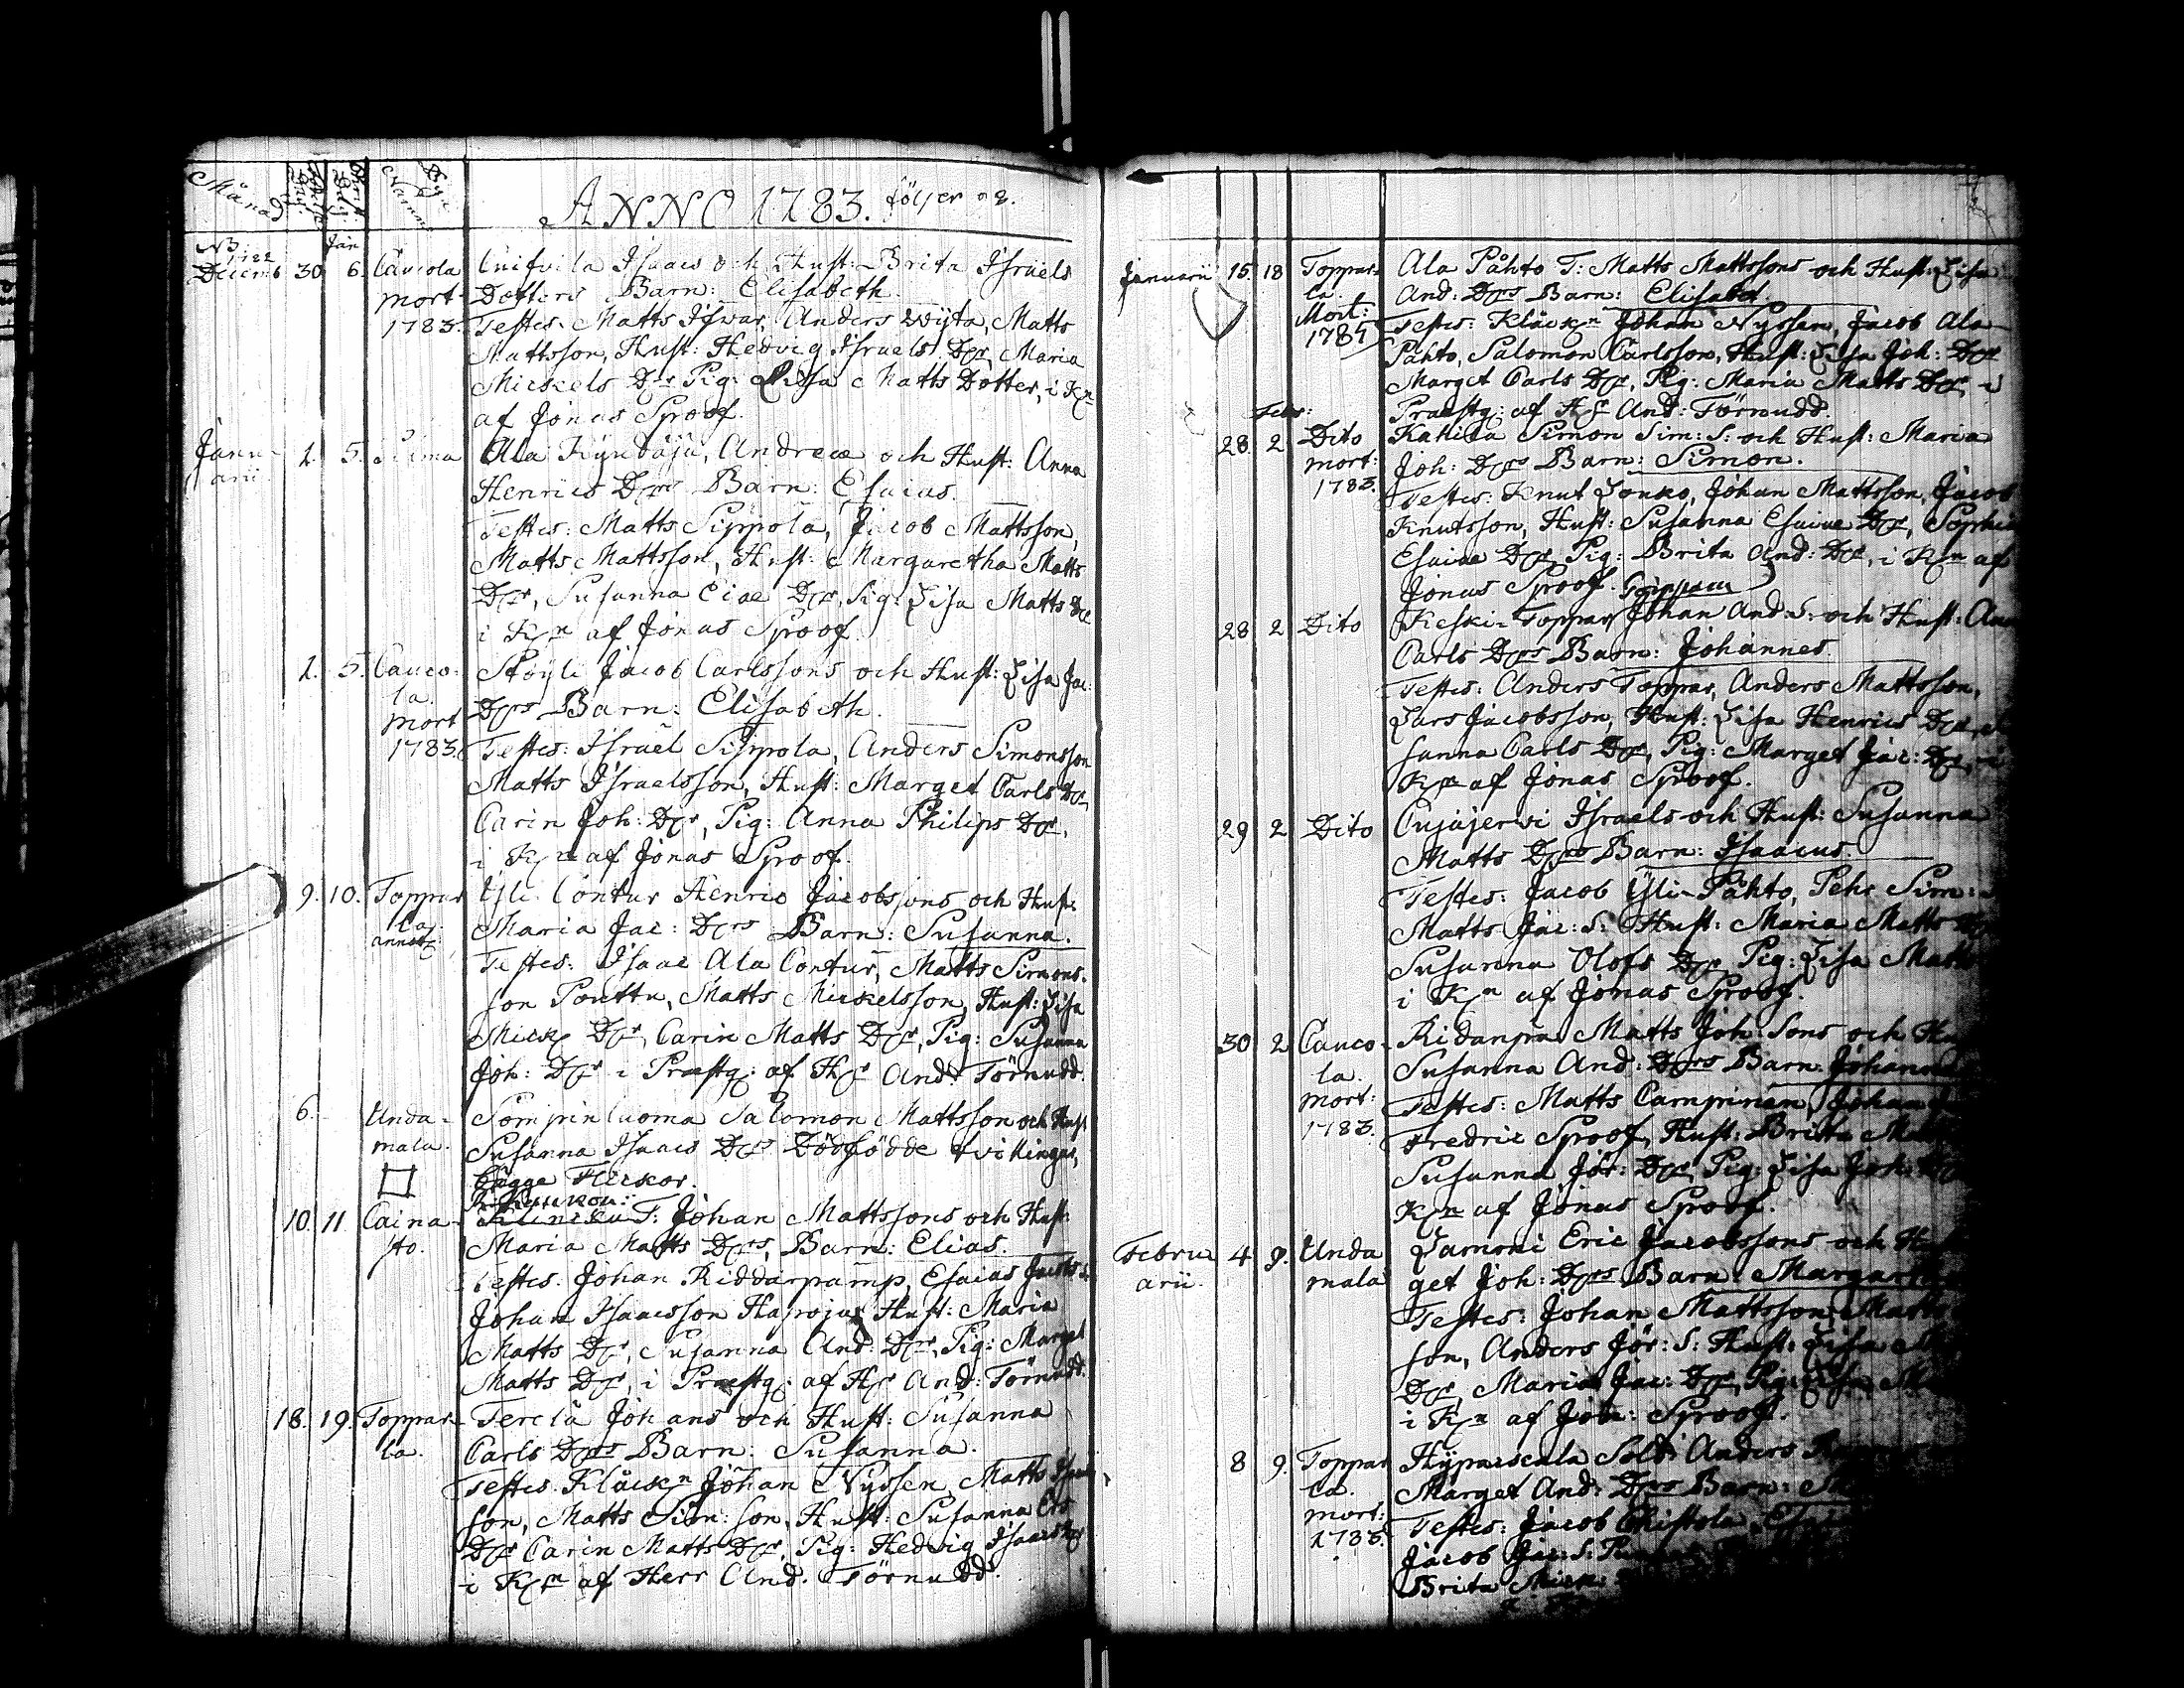 Månad
Byns Namn
ANNO 1783. följer os.
NB. 1782 Jan
Decemb 30 6. Caucola Isaacs och Hust: Brita Israels
mort Dotters Barn: Elisabeth.
1783. Testes: Matts Iswar, Anders Wijta, Matts
Mattsson, Hust: Hedvig Israels Dr, Maria
Mickels Dr Pig: Lisa Matts Dotter, i Kn
af Jonas Sproof.
Janu- 1. 5. Ala Andreæ och Hust: Anna
arii Henrics Drs Barn: Esaias.
Testes: Matts Sippola, Jacob Mattsson,
Matts Mattsson, Hust: Margaretha Matts
Dr, Susanna Dr, Pig: Lisa Matts Dr
i Kn af Jonas Sproof.
1. 5. Cauco- Stöyli Jacob Carlssons och Hust: Lisa Jac:
la. Drs Barn: Elisabeth.
mort
1783. Testes: Israel Sippola, Anders Simonsson
Matts Israelsson, Hust: Marget Carls Dr
Carin Joh: Dr, Pig: Anna Philips Dr,
i Kn af Jonas Sproof.
9. 10. Toppar Yli Contur Henric Jacobssons och Hust:
la. Maria Jac: Drs Barn: Susanna.
annot:
Testes: Isaac Ala Contur, Matts Simons-
son Pouttu, Matts Mickelsson, Hust: Lisa
Mick Dr, Carin Matts Dr, Pig: Susanna
Joh: Dr i Præstg: af Hr And: Törnudd.
6. Unda- Sompinluoma Salomon Mattsson och Hust
mala. Susanna Isaacs Drs Dödfödde tvillingar,
bägge Flickor.
10. 11. Caina- T: Johan Mattssons och Hust:
sto. Maria Matts Drs, Barn: Elias.
Testes: Johan Riddarpamp, Esaias Jacobs S.
Johan Isaacsson Haproja Hust: Maria
Matts Dr, Susanna And: Dr, Pig: Marget
Matts Dr, i Præstg: af Hr And: Törnudd.
18. 19. Toppar- Tercla Johans och Hust: Susanna
la. Carls Drs Barn: Susanna.
Testes. Klåckn Johan Nyssen, Matts
son, Matts Sim: son, Hust: Susanna
Dr Carin Matts Dr, Pig: Hedvig Isaacs Dr
i Kn af Herr And. Törnudd.
Januarii 15. 18 Toppar- Ala Påhto T: Matts Mattssons och Hust: Lisa
la. And: Drs Barn: Elisabet.
Mort: Testes: Klåckn Johan Nyssen, Jacob Ala
1784 Påhto, Salomon Carlsson, Hust: Lisa Joh: Dr
Marget Carls Dr, Pig: Maria Matts Dr i
Febr: Præstg: af Hr And: Törnudd.
28. 2 Dito Kahila Simon Sim: S: och Hust: Maria
mort: Joh: Drs Barn: Simon.
1783. Testes: Knut Lonko, Johan Mattsson, Jacob
Knutsson, Hust: Susanna Esaiæ Dr, Sophia
Esaiæ Dr, Pig: Brita And: Dr, i Kn af
Jonas Sproof.
28 2 Dito Keski-Toppar Johan And: S: och Hust:
Carls Drs Barn: Johannes.
Testes: Anders Toppar, Anders Mattsson,
Lars Jacobsson, Hust: Lisa Henrics Dr,
sanna Carls Dr, Pig: Marget Jac: Dr, i
Kn af Jonas Sproof.
29 2 Dito Cujajerwi Israels och Hust: Susanna
Matts Drs Barn: Isaacus.
Testes: Jacob Yli-Påhto, Pehr Sim:
Matts Jac: S: Hust: Maria Matts
Susanna Olofs Dr, Pig: Lisa Matts
i Kn af Jonas Sproof.
30 2 Cauco- Ridarpam Matts Joh: Sons och
la. Susanna And: Drs Barn:
mort: Testes: Matts Campinen, Johan
1783. Fredric Sproof, Hust: Brita
Susanna Jör: Dr, Pig: Lisa Joh:
Kn af Jonas Sproof.
Febru 4 9. Unda Lamoni Eric Jacobssons och
arii. mala get Joh: Drs Barn:
Testes: Johan Mattsson, Matts
son, Anders Jör: S: Hust: Lisa
Dr, Maria Jac: Dr, Pig:
i Kn af Jon: Sproof.
8 9. Toppar Sold: Anders
la. Marget And: Drs Barn:
mort: Testes: Jacob
1783. Jacob Jac: S:
Brita Mick